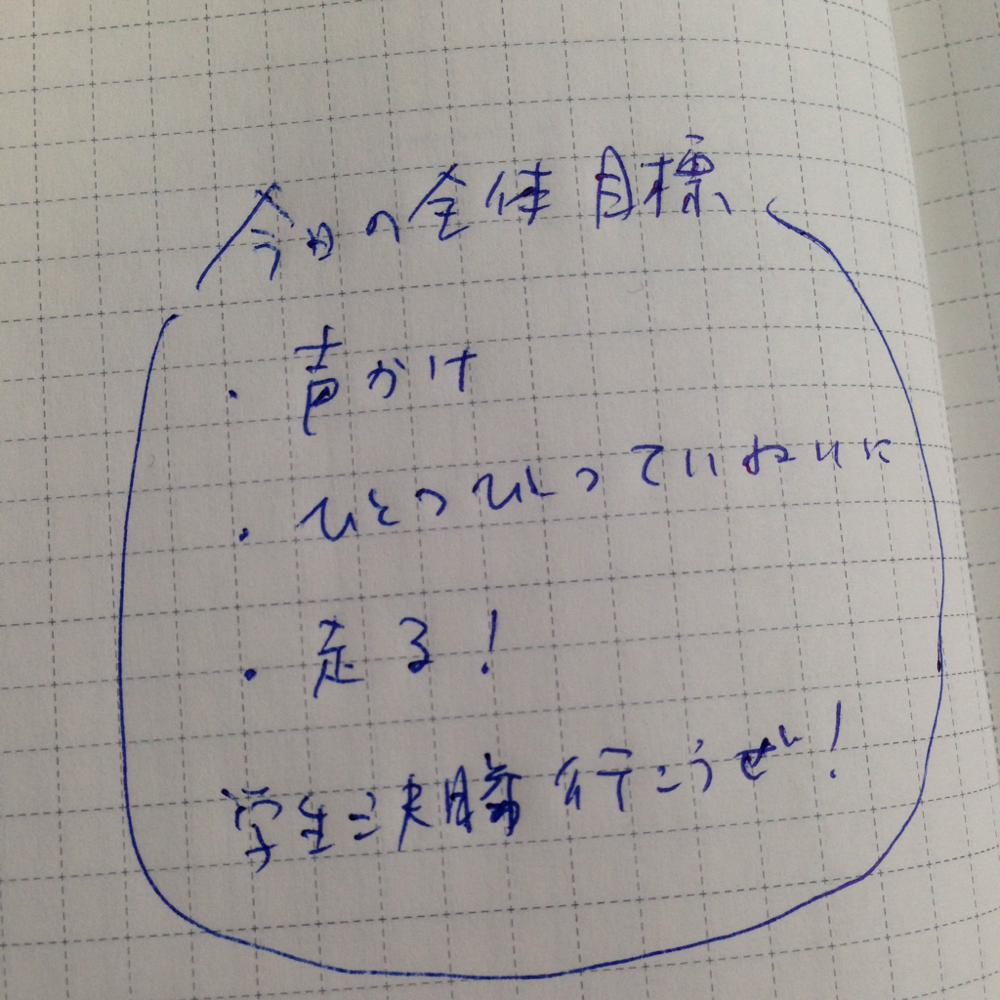 今日の全体目標
・声かけ
・ひとつひとつていねいに
・走る!
学生決勝行こうぜ!